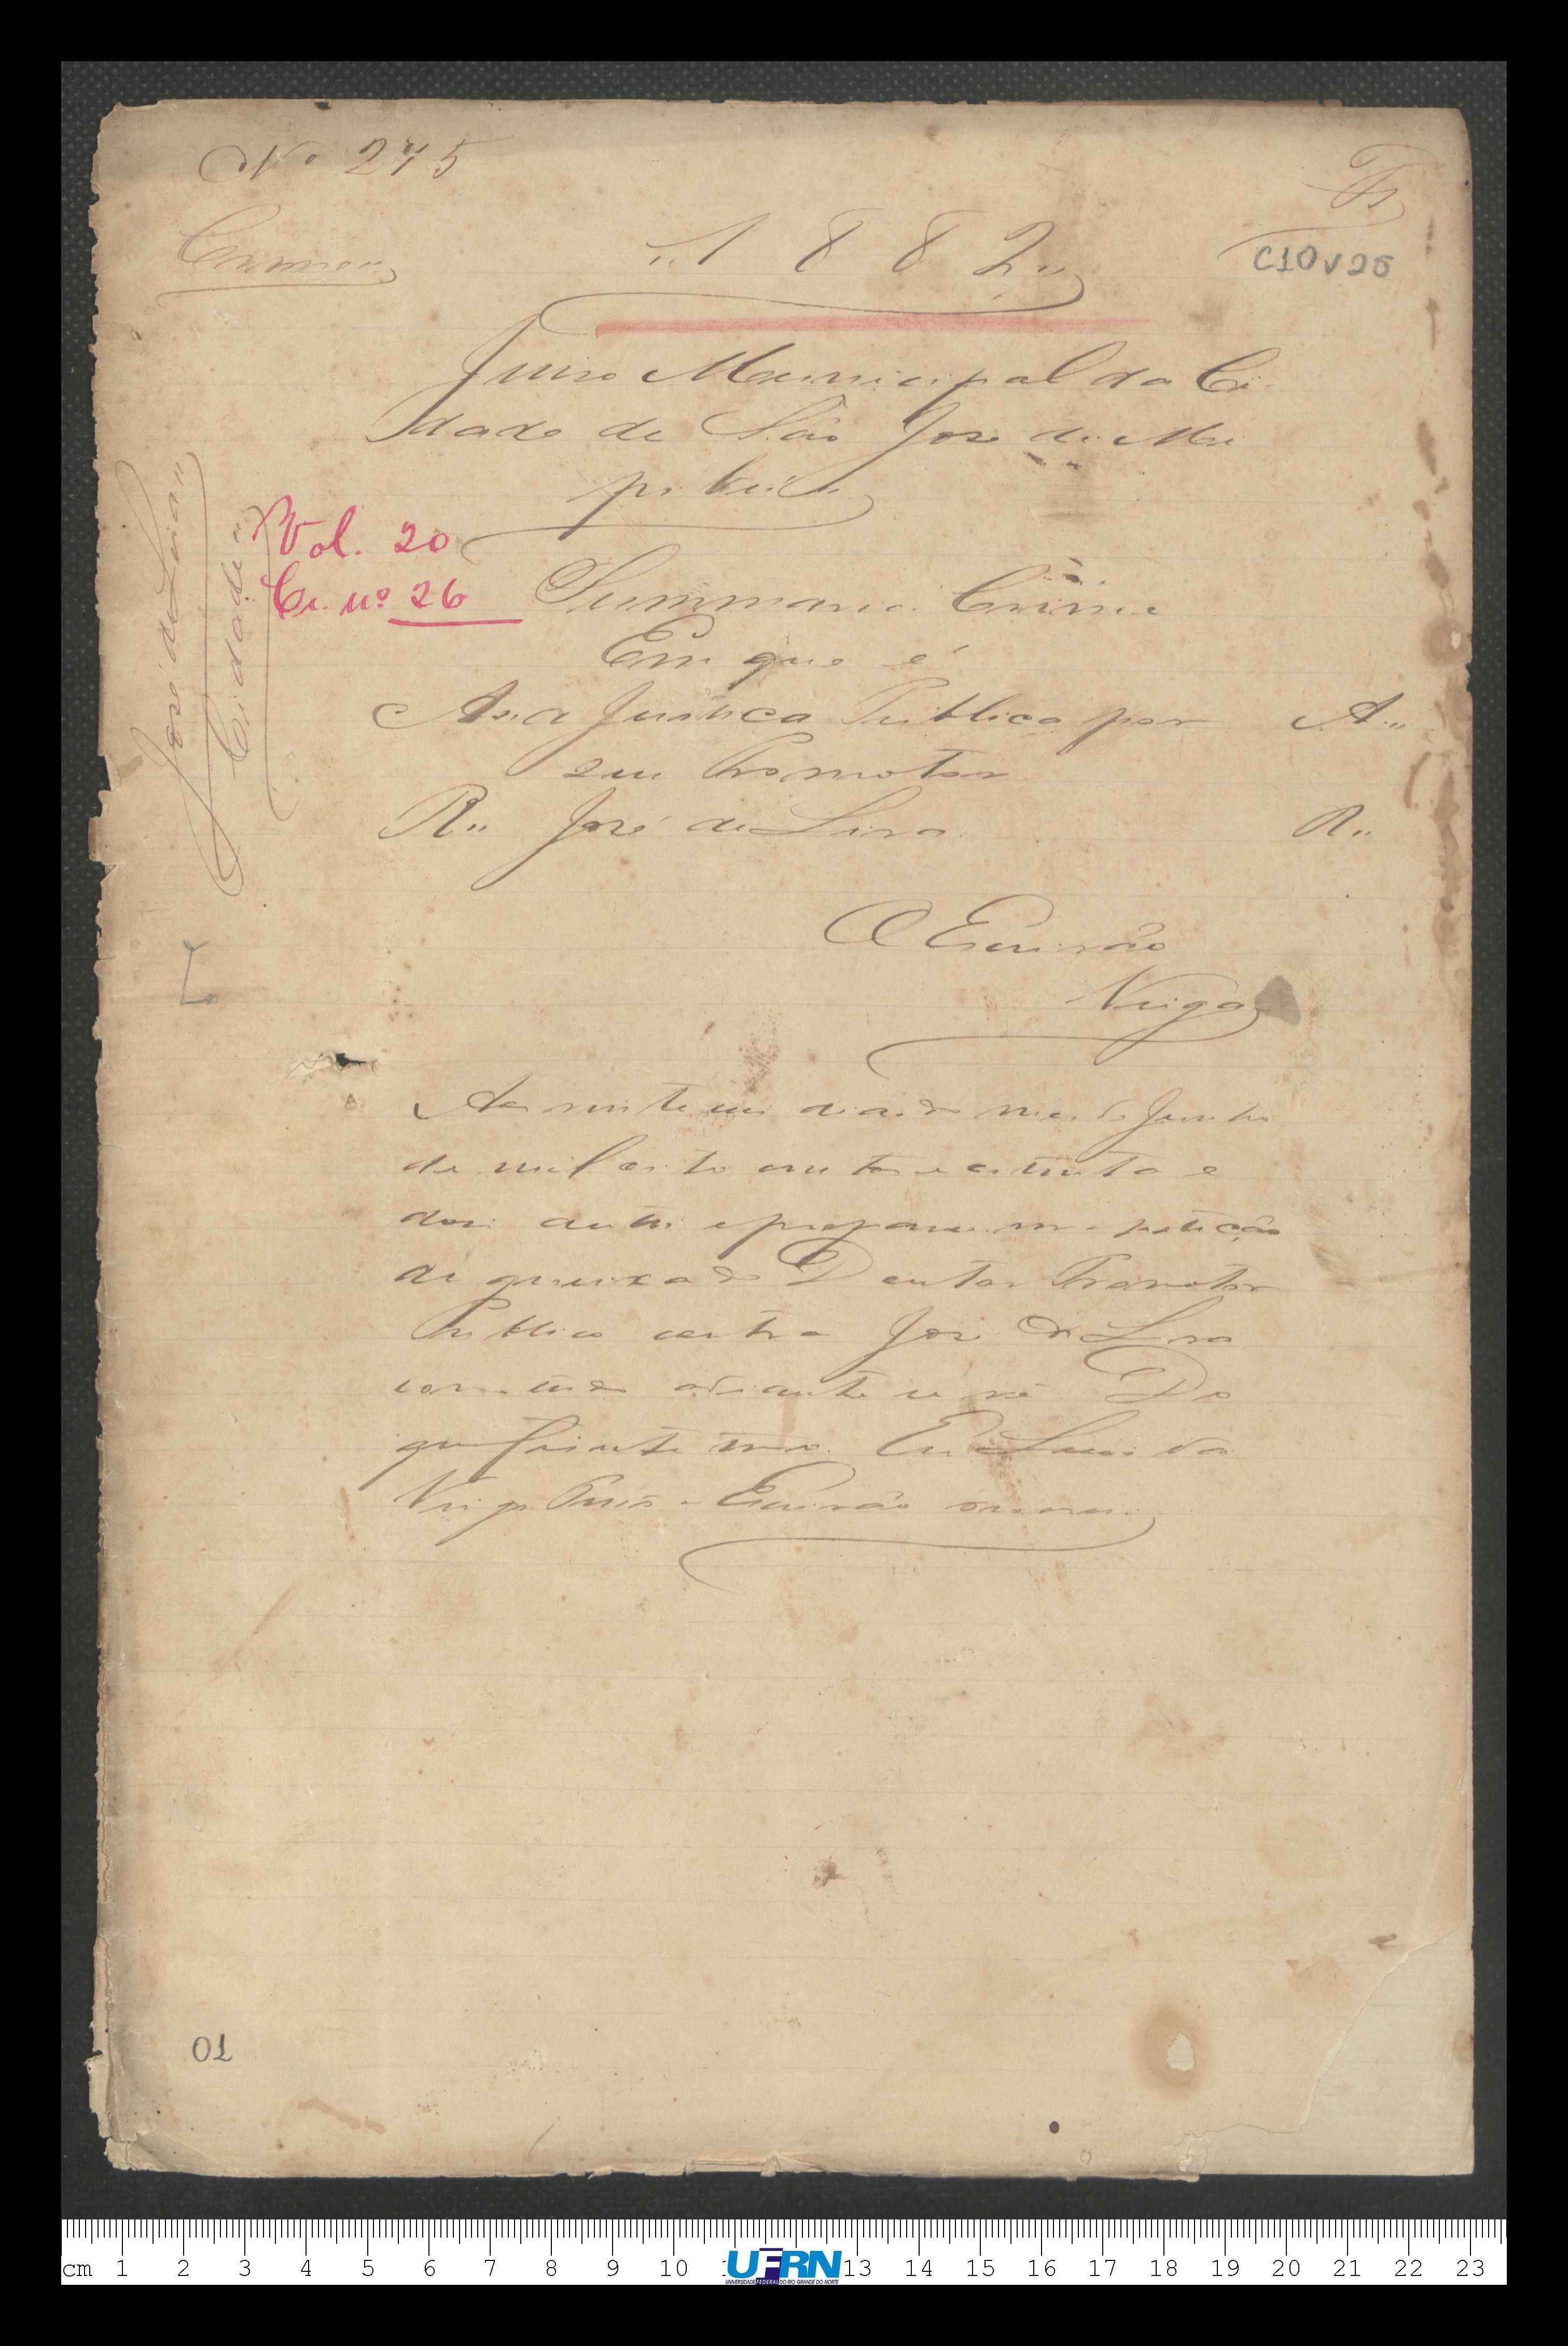 Nº 275
Fs
Crime
C10V25
"1882"
Juiso Municipal da Ci
dade de São José de Mi
pibú
José de Lira
Cidade
Vol. 20
Cr. nº 26
Summario Crime
Em que é
A. a Justica Publica por A.
seu Promotor
R. José de Lira R.
O Escrivão
Veiga
Aos vinte um dias do mes de Junho
de mil oito centos e oitenta e
dois autoei e preparei uma petição
de queixa do Doutor Promotor
Publico contra José de Lira
como tudo adiante se vê Do
que fiz este termo. Eu
Veiga Escrivão
01
cm 1 2 3 4 5 6 7 8 9 10 13 14 15 16 17 18 19 20 21 22 23
UFRN
UNIVERSIDADE FEDERAL DO RIO GRANDE DO NORTE